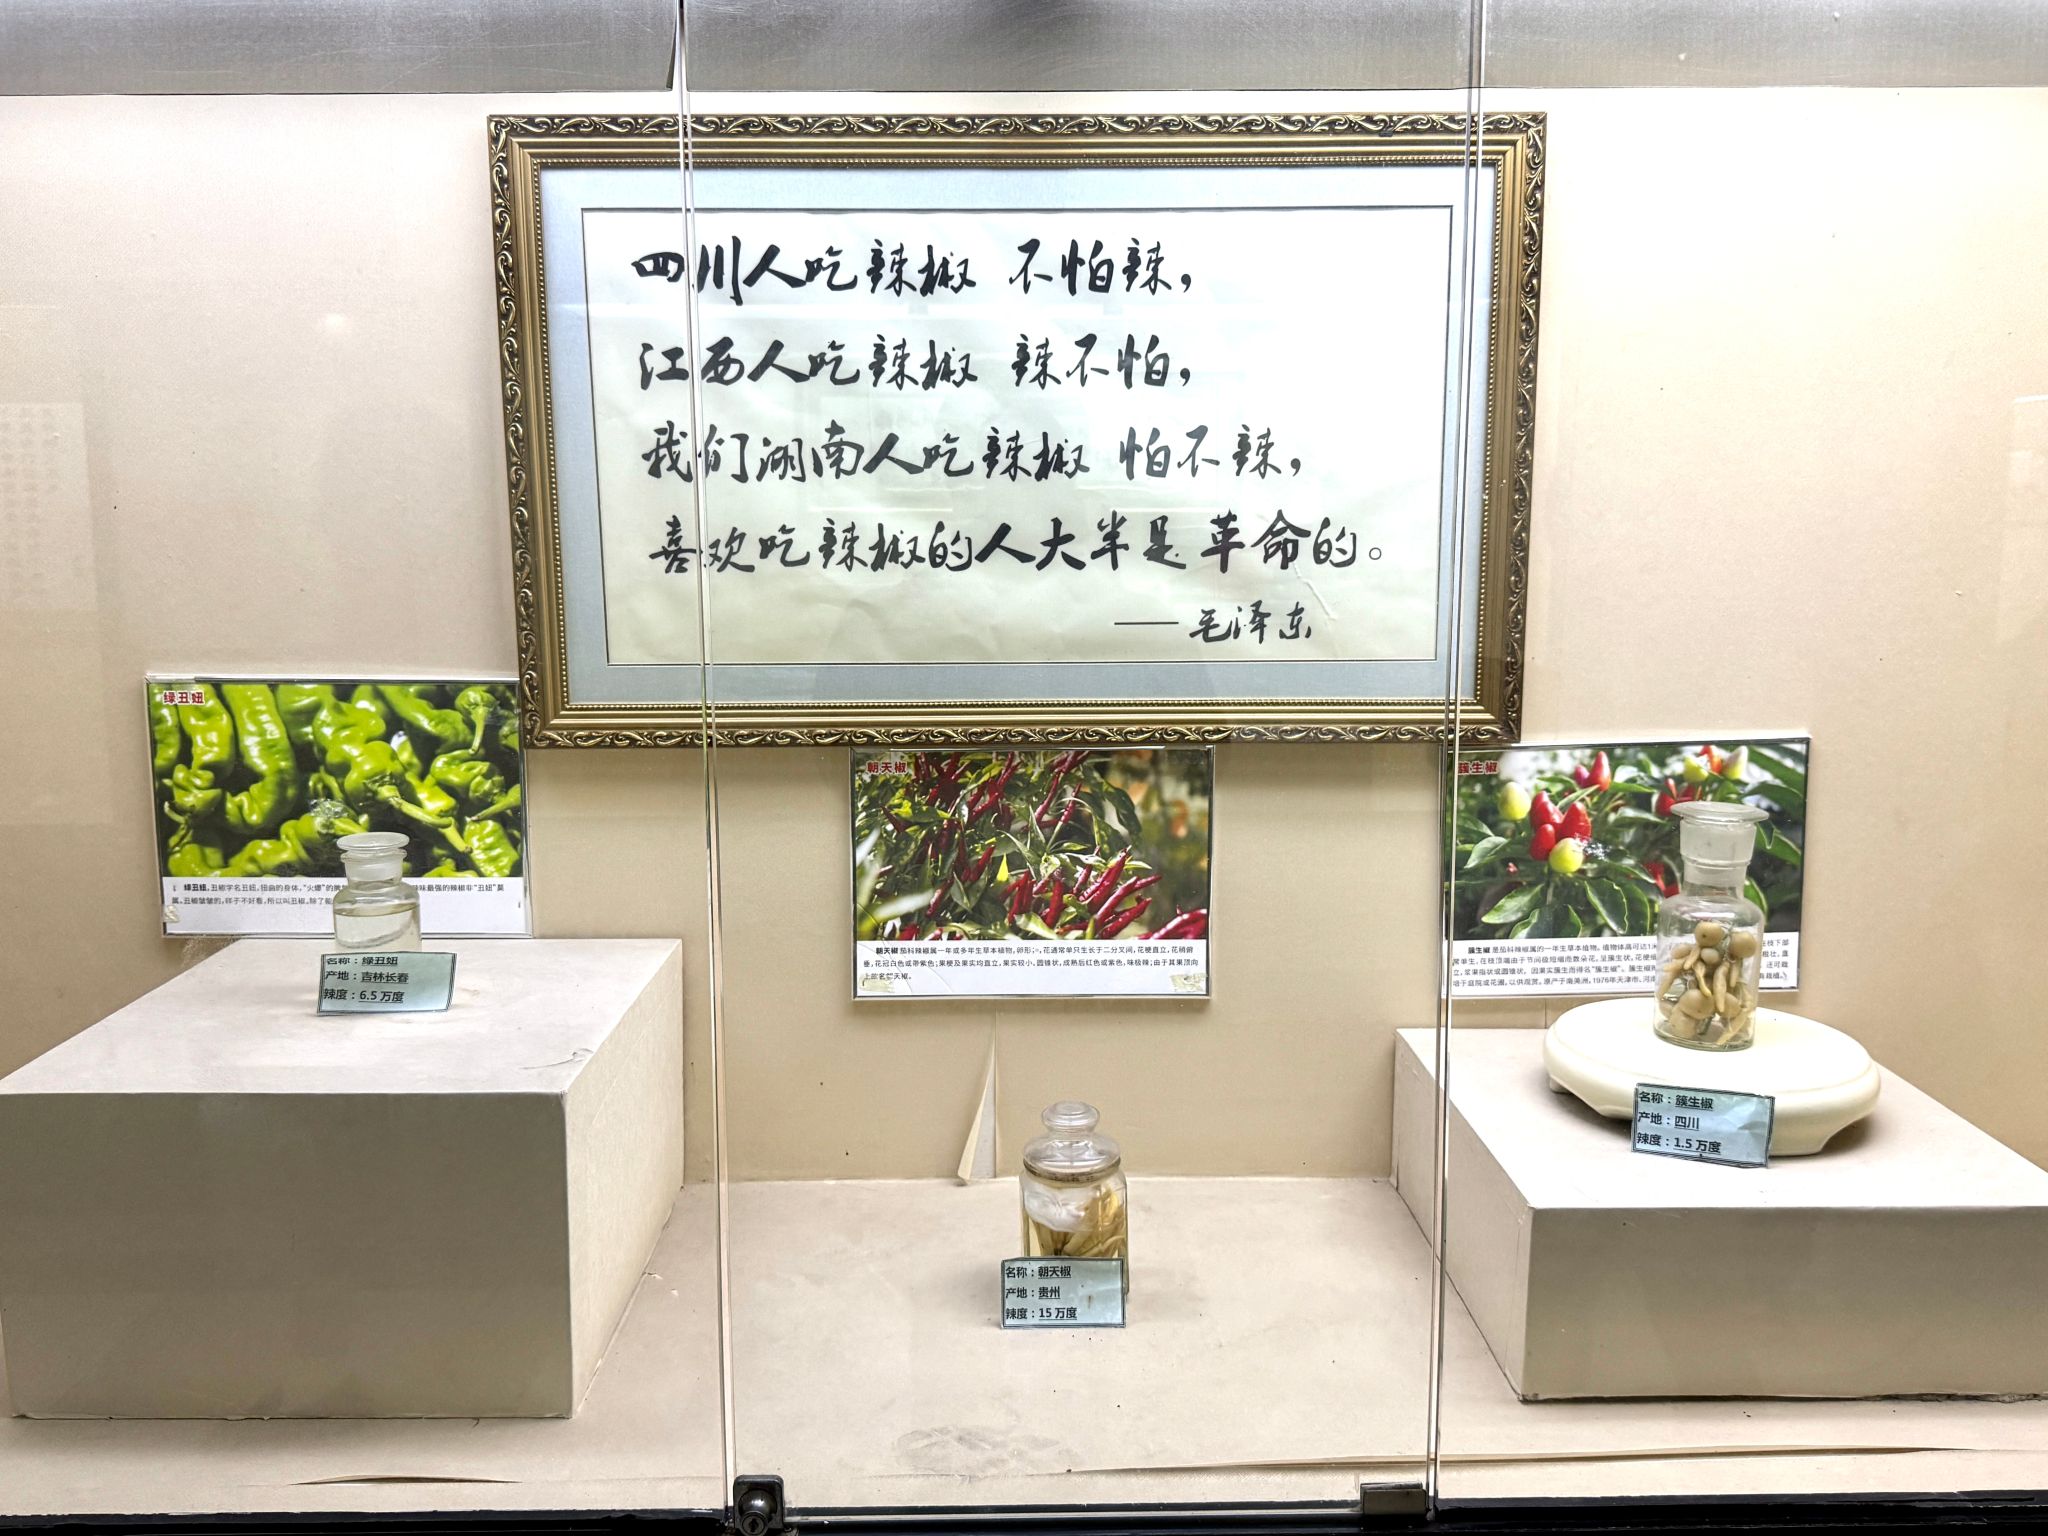 四川人吃辣椒 不怕辣，
江西人吃辣椒 辣不怕，
我们湖南人吃辣椒 怕不辣，
喜欢吃辣椒的人大半是革命的。
——毛泽东
绿丑妞
绿丑妞，丑椒学名丑妞，扭曲的身体，“火爆”的脾
味最强的辣椒非“丑妞”莫
属。丑椒皱皱的，样子不好看，所以叫丑椒。除了能
名称：绿丑妞
产地：吉林长春
辣度：6.5 万度
朝天椒
朝天椒 茄科辣椒属一年或多年生草本植物，卵形；花通常单只生长于二分叉间，花梗直立，花稍俯
垂，花冠白色或带紫色；果梗及果实均直立，果实较小，圆锥状，成熟后红色或紫色，味极辣；由于其果顶向
上故名朝天椒。
名称：朝天椒
产地：贵州
辣度：15 万度
簇生椒
簇生椒 是茄科辣椒属的一年生草本植物。植物体高可达1米
常单生，在枝顶端由于节间极短缩而数朵花，呈簇生状，花梗
立，浆果指状或圆锥状，因果实簇生而得名“簇生椒”。簇生椒
培于庭院或花圃，以供观赏。原产于南美洲，1976年天津市、河南
名称：簇生椒
产地：四川
辣度：1.5 万度